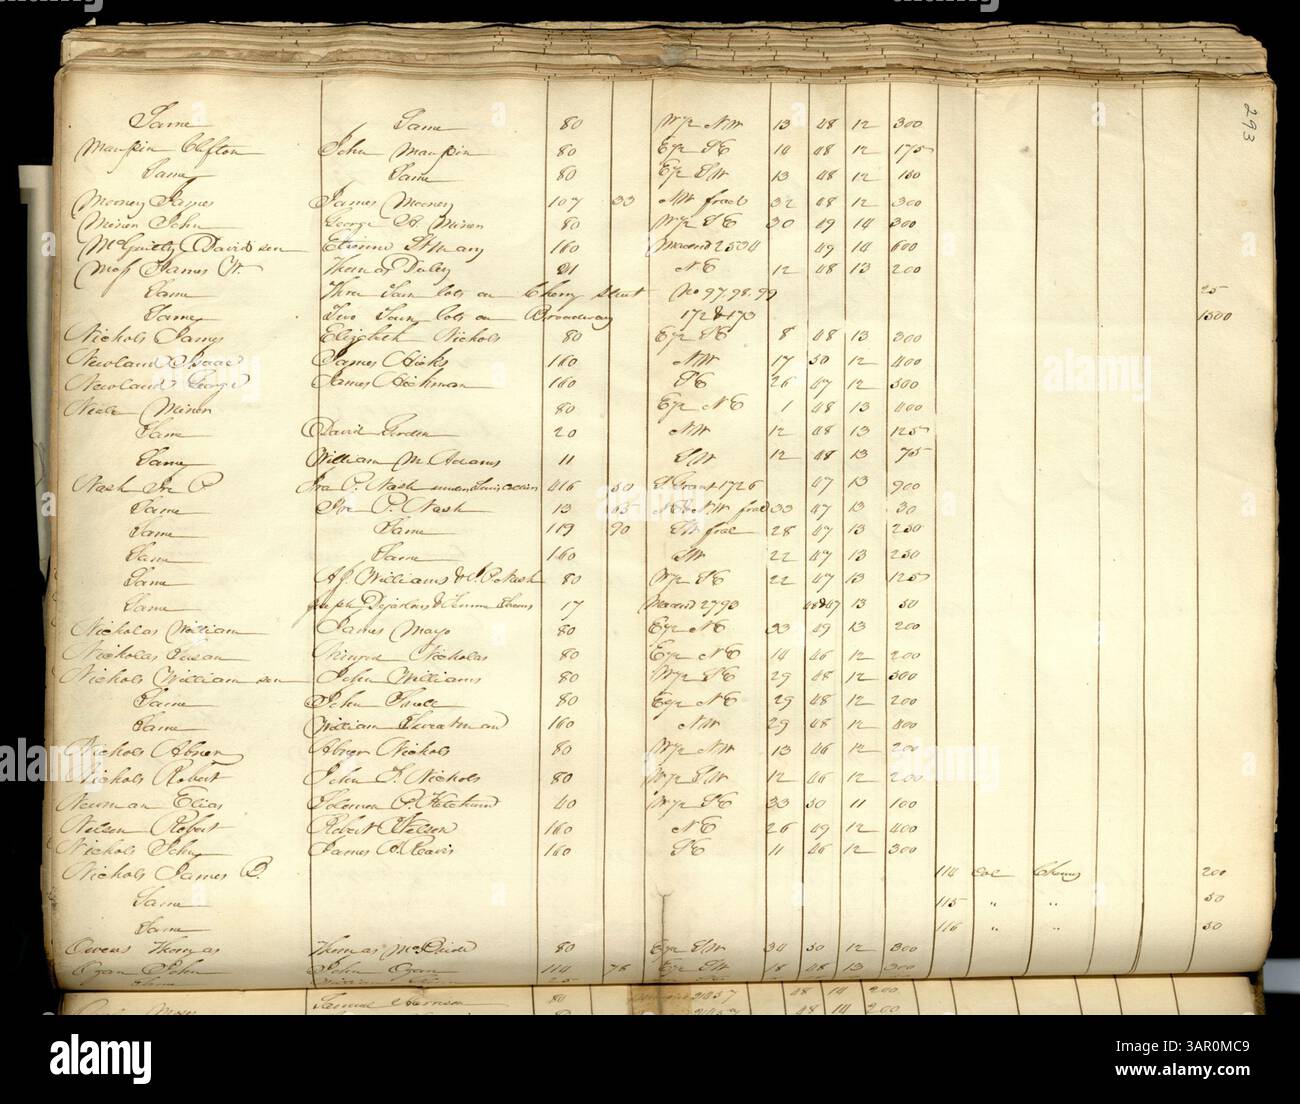 293
Same Same 80 W½ NW 13 48 12 300
Maupin Clifton John Maupin 80 E½ SE 14 48 12 175
Same Same 80 E½ SW 13 48 12 150
Mooney James James Mooney 107 33 NW fracl 32 48 12 300
Minor John George H. Minor 80 W½ SE 30 49 14 300
David sen Etienne St Mary 160 2534 49 14 600
Moss James W. Thomas Duley 21 NE 12 48 13 200
Same Three Town lots on Cherry Street No 97.98.99 25
Same Two Town lots on Broadway 172 & 173 1500
Nichols James Elizabeth Nichols 80 E½ SE 8 48 13 300
Newland Isaac James Hicks 160 NW 17 50 12 400
Newland George James Hickman 160 SE 26 47 12 500
Minor 80 E½ NE 1 48 13 400
Same David 20 NW 12 48 13 125
Same William M. Adams 11 SW 12 48 13 75
Nash Ira P Ira P. Nash 416 50 1726 47 13 900
Same Ira P. Nash 13 NW fracl 33 47 13 30
Same Same 119 90 SW frac 28 47 13 250
Same Same 160 SW 22 47 13 250
Same A.J. Williams & I. P. Nash 80 W½ SE 22 47 13 125
Same Joseph 17 2793 48&47 13 50
Nicholas William James Mayo 80 E½ NE 33 49 13 200
Nicholas Susan Nicholas 80 E½ NE 14 46 12 200
Nichols William sen John Williams 80 W½ SE 29 48 12 300
Same John 80 E½ NE 29 48 12 200
Same William 160 NW 29 48 12 400
Nichols Abner Abner Nichols 80 W½ NW 13 46 12 200
Nichols Robert John F. Nichols 80 W½ SW 12 46 12 200
Newman Elias Solomon P. Ketchum 40 W½ SE 33 50 11 100
Nelson Robert Robert Nelson 160 NE 26 49 12 400
Nichols John James B. Reavis 160 SE 11 46 12 300
Nichols James B. 114 Col 200
Same 115 " " 50
Same 116 " " 50
Owens Thomas Thomas McBride 80 E½ SW 34 50 12 300
Ogan John John Ogan 114 78 E½ SW 18 48 13 300
Samuel Harrison 80 2457 48 14 200
48 14 200
alamy
Image ID: 3AR0MC9
www.alamy.com